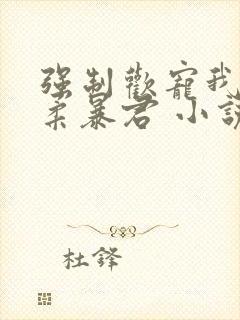 强制歡寵我
柔暴君 小說
杜鋒